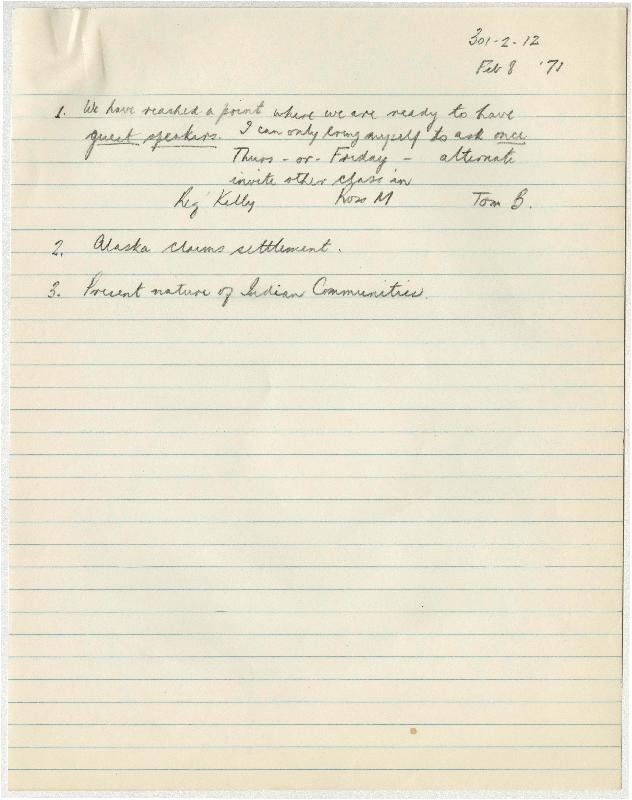 301-2-12
Feb 8 '71
1. We have reached a point where we are ready to have
guest speakers. I can only bring myself to ask once
Thurs - or - Friday - alternate
invite other class in
Reg Kelly Ross M Tom B.
2. Alaska claims settlement.
3. Present nature of Indian Communities.